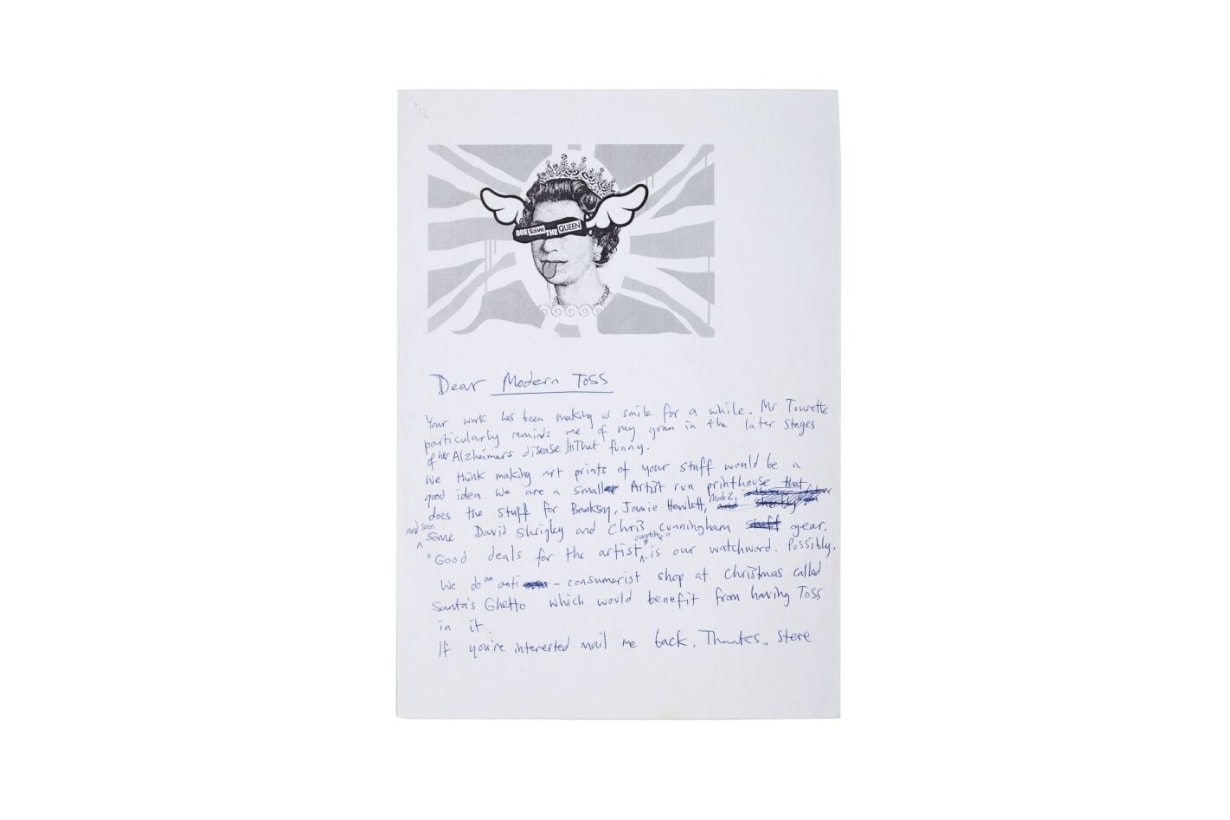 GOD Save THE QUEEN
Dear Modern Toss
Your work has been making us smile for a while. Mr Tourette
particularly reminds me of my gran in the later stages
of her Alzheimers disease that funny.
We think making art prints of your stuff would be a
good idea. We are a small Artist run printhouse that
does the stuff for Banksy, Jamie Hewlett,
and soon some David Shrigley and Chris Cunningham gear.
"Good deals for the artist is our watchword. Possibly.
We do an anti - consumerist shop at Christmas called
Santa's Ghetto which would benefit from having Toss
in it.
If you're interested mail me back. Thanks. Steve